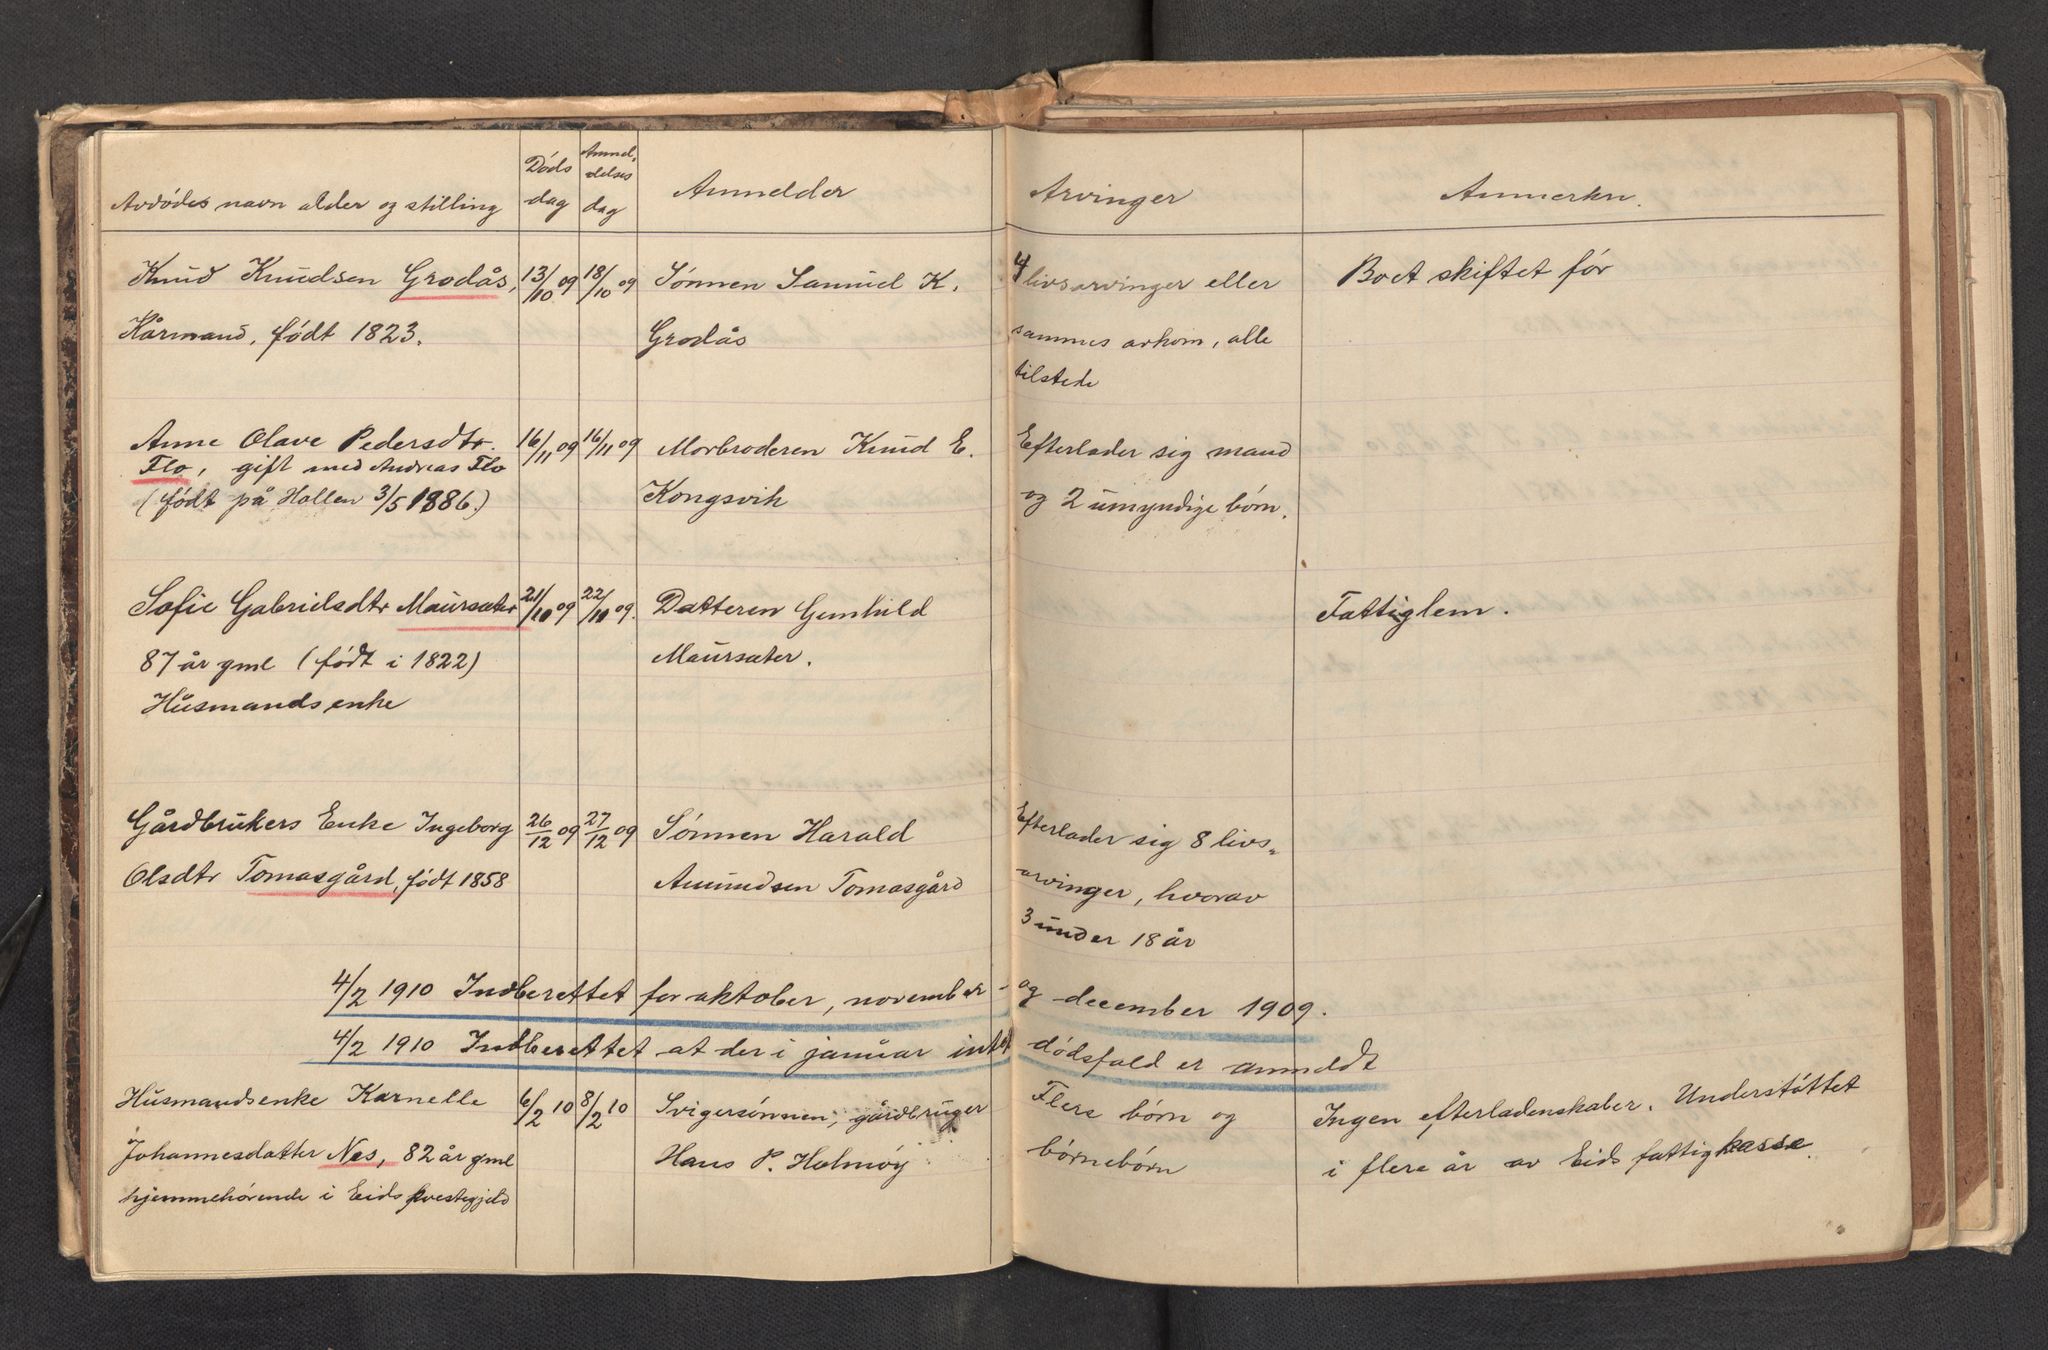 Avdødes navn alder og stilling
Døds
dag
Anmel-
delses
dag
Anmelder
Arvinger
Anmerkn.
Knud Knudsen Grodås,
Kårmand, født 1823.
13/10 09
18/10 09
Sønnen Samuel K.
Grodås
4 livsarvinger eller
sammes avkom, alle
tilstede
Boet skiftet før
Anne Olave Pedersdtr.
Flo, gift med Andreas Flo
(født på Hollen 3/5 1886.)
16/11 09
16/11 09
Morbroderen Knud E.
Kongsvik
Efterlader sig mand
og 2 umyndige børn.
Sofie Gabrielsdtr Maursæter
87 år gml (født i 1822)
Husmandsenke
21/10 09
22/10 09.
Datteren Gunhild
Maursæter.
Fattiglem.
Gårdbrukers Enke Ingeborg
Olsdtr Tomasgård, født 1858
26/12 09
27/12 09
Sønnen Harald
Amundsen Tomasgård
Efterlader sig 8 livs-
arvinger, hvorav
3 under 18 år
4/2 1910 Indberettet for oktober, november - og december 1909.
4/2 1910 Indberettet at der i januar intet dødsfald er anmeldt
Husmandsenke Karnelle
Johannesdatter Nes, 82 år gml
hjemmehørende i Eids prestegjeld
6/2 10
8/2 10
Svigersønnen, gårdbruger
Hans P. Holmøy
Flere børn og
børnebørn
Ingen efterladenskaber. Understøttet
i flere år av Eids fattigkasse.